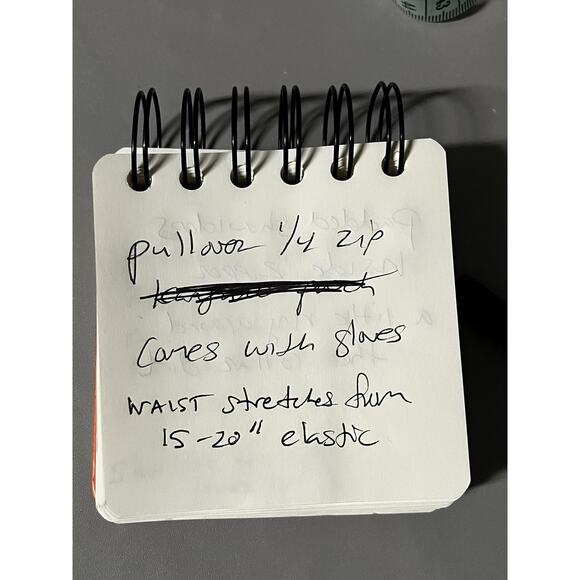 pullover 1/4 zip
Comes with gloves
WAIST stretches from
15-20" elastic